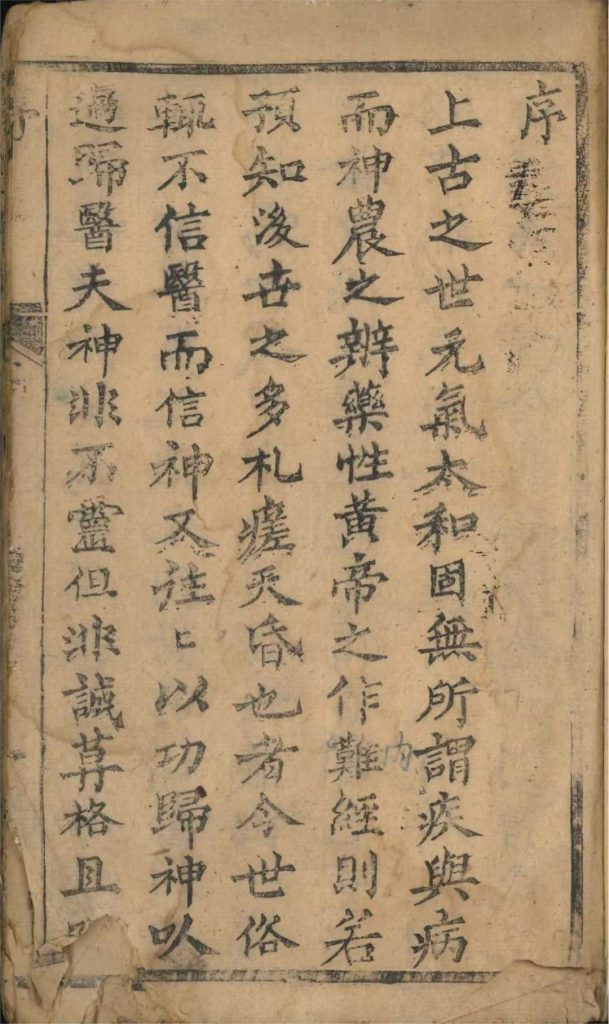 序
上古之世元氣太和固無所謂疾與病
而神農之辨藥性黄帝之作難經則若
内
預知後世之多札瘥夭昏也者今世俗
輒不信醫而信神又往〻以功歸神以
過歸醫夫神非不靈但非誠莫格且